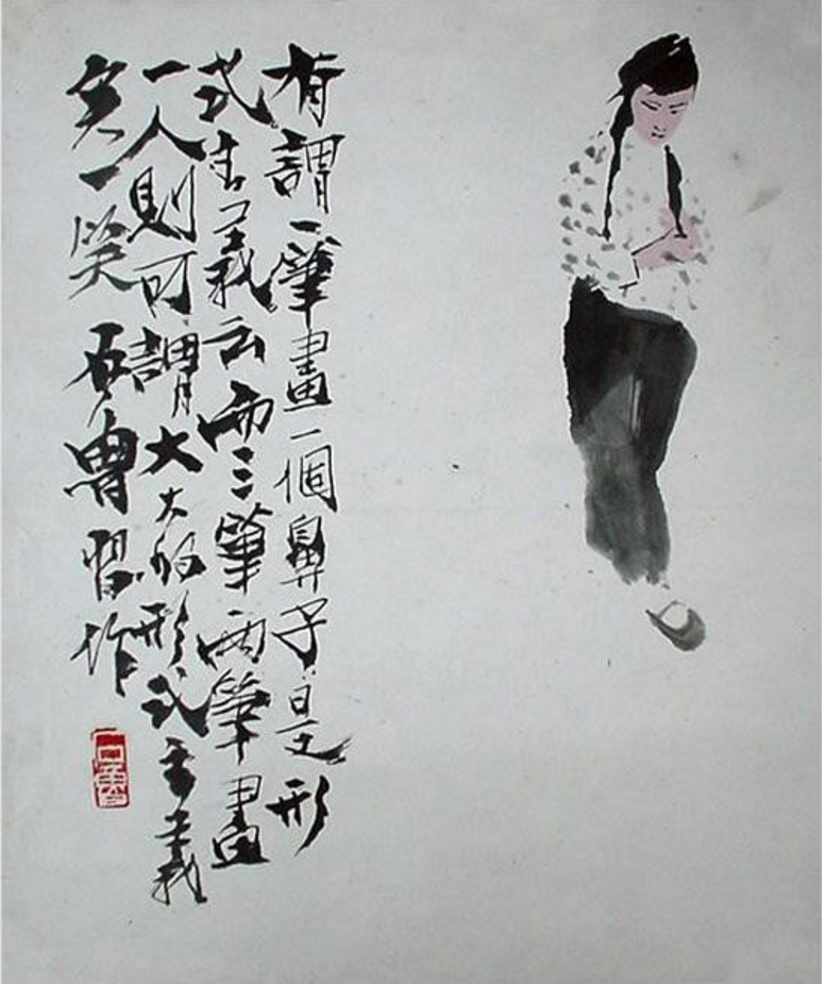 有謂一筆畫一個鼻子是形
式主義云而三筆兩筆畫
一人則可謂大大的形式主義
矣一笑 石魯習作